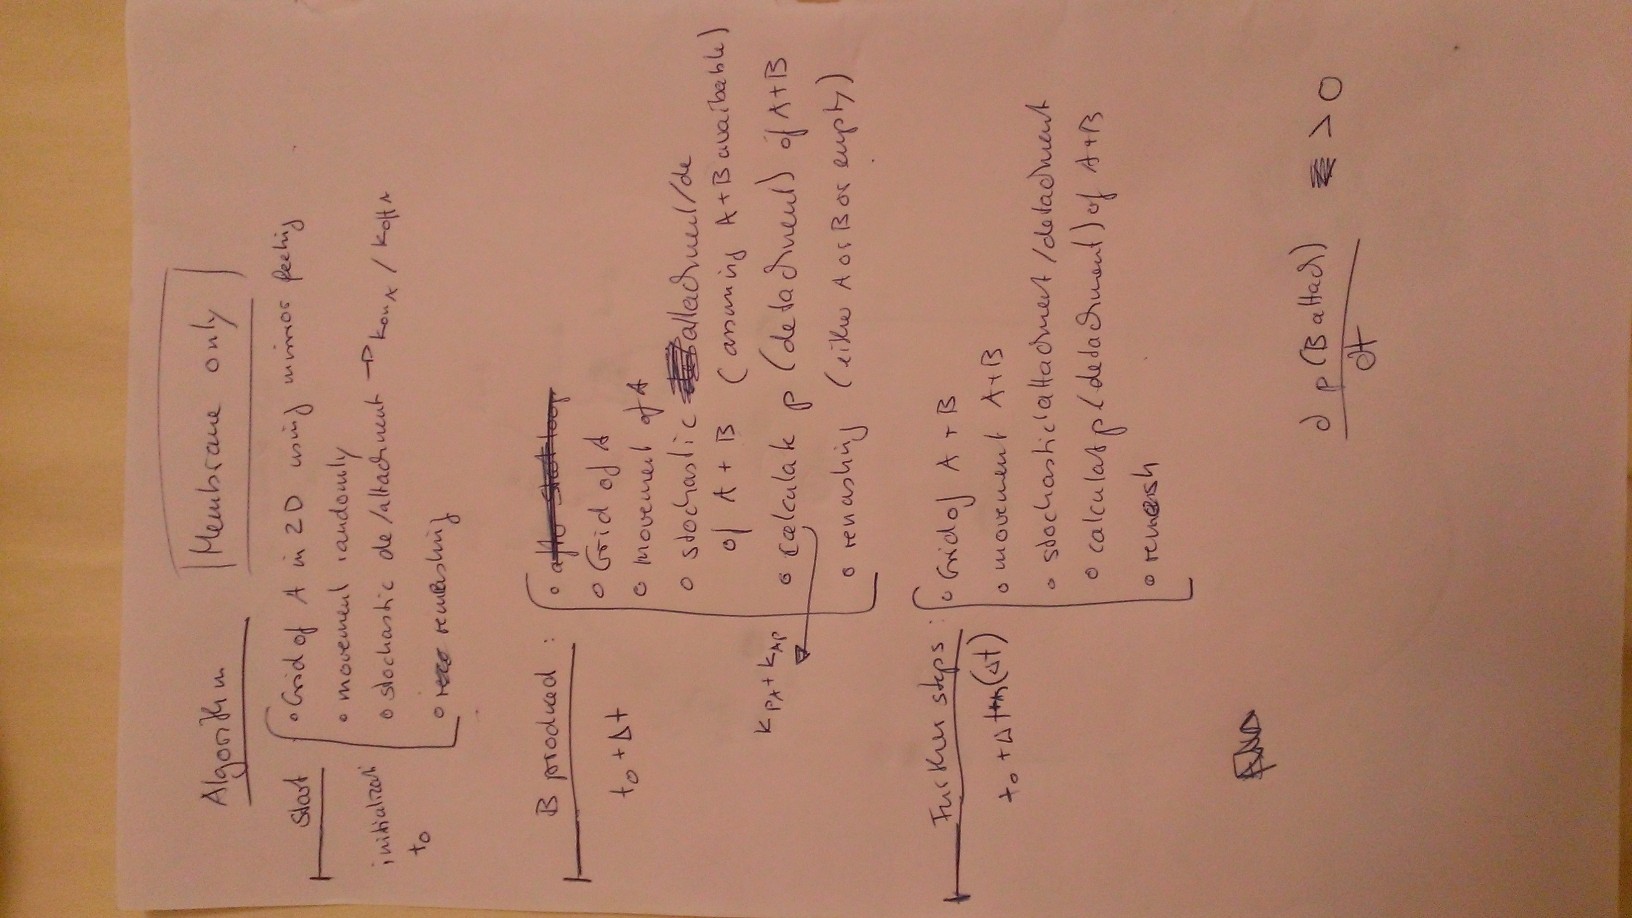 Algorithm
Membrane only
Start
initializati
t0
• Grid of A in 2D using mirror feeling
• movement randomly
• stochastic de/attachment → konA / koffA
• remeshing
B produced :
t0 + Δt
• after start loop
• Grid of A
• movement of A
• stochastic attachment/de
of A + B (assuming A+B available)
• calculate p (detachment) of A+B
kPA + kAP
• remashing (either A or B or empty)
Further steps :
t0 + Δt + n(Δt)
• Grid of A + B
• movement A+B
• stochastic attachment/detachment
• calculat p (detachment) of A+B
• remersh
∂ p(B attach)
∂t
> 0